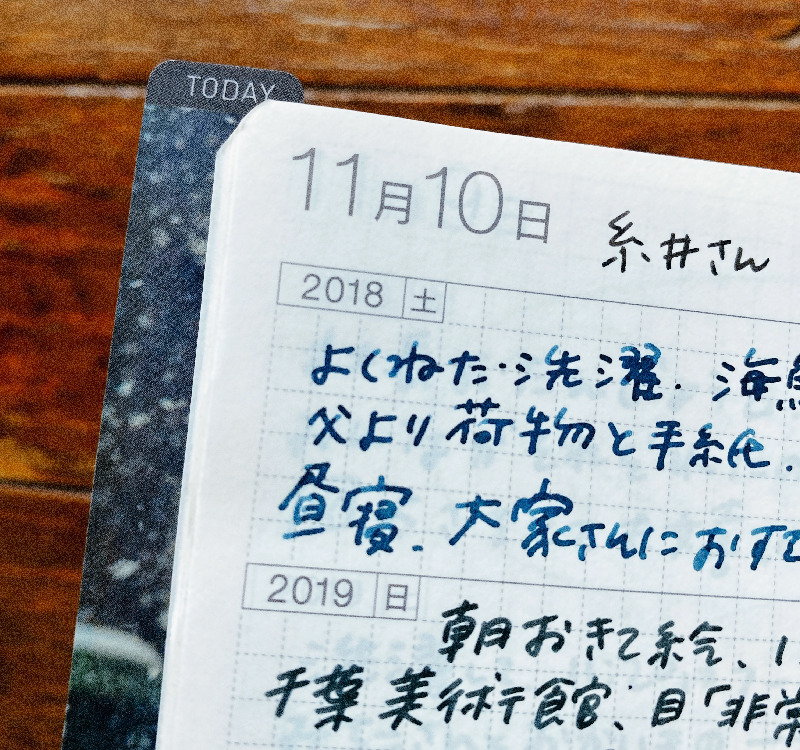 TODAY
11月10日 糸井さん
2018 土
よくねた…洗濯. 海
父より荷物と手紙.
昼寝. 大家さんにおす
2019 日
朝おきて絵、
千葉美術館. 目「非常